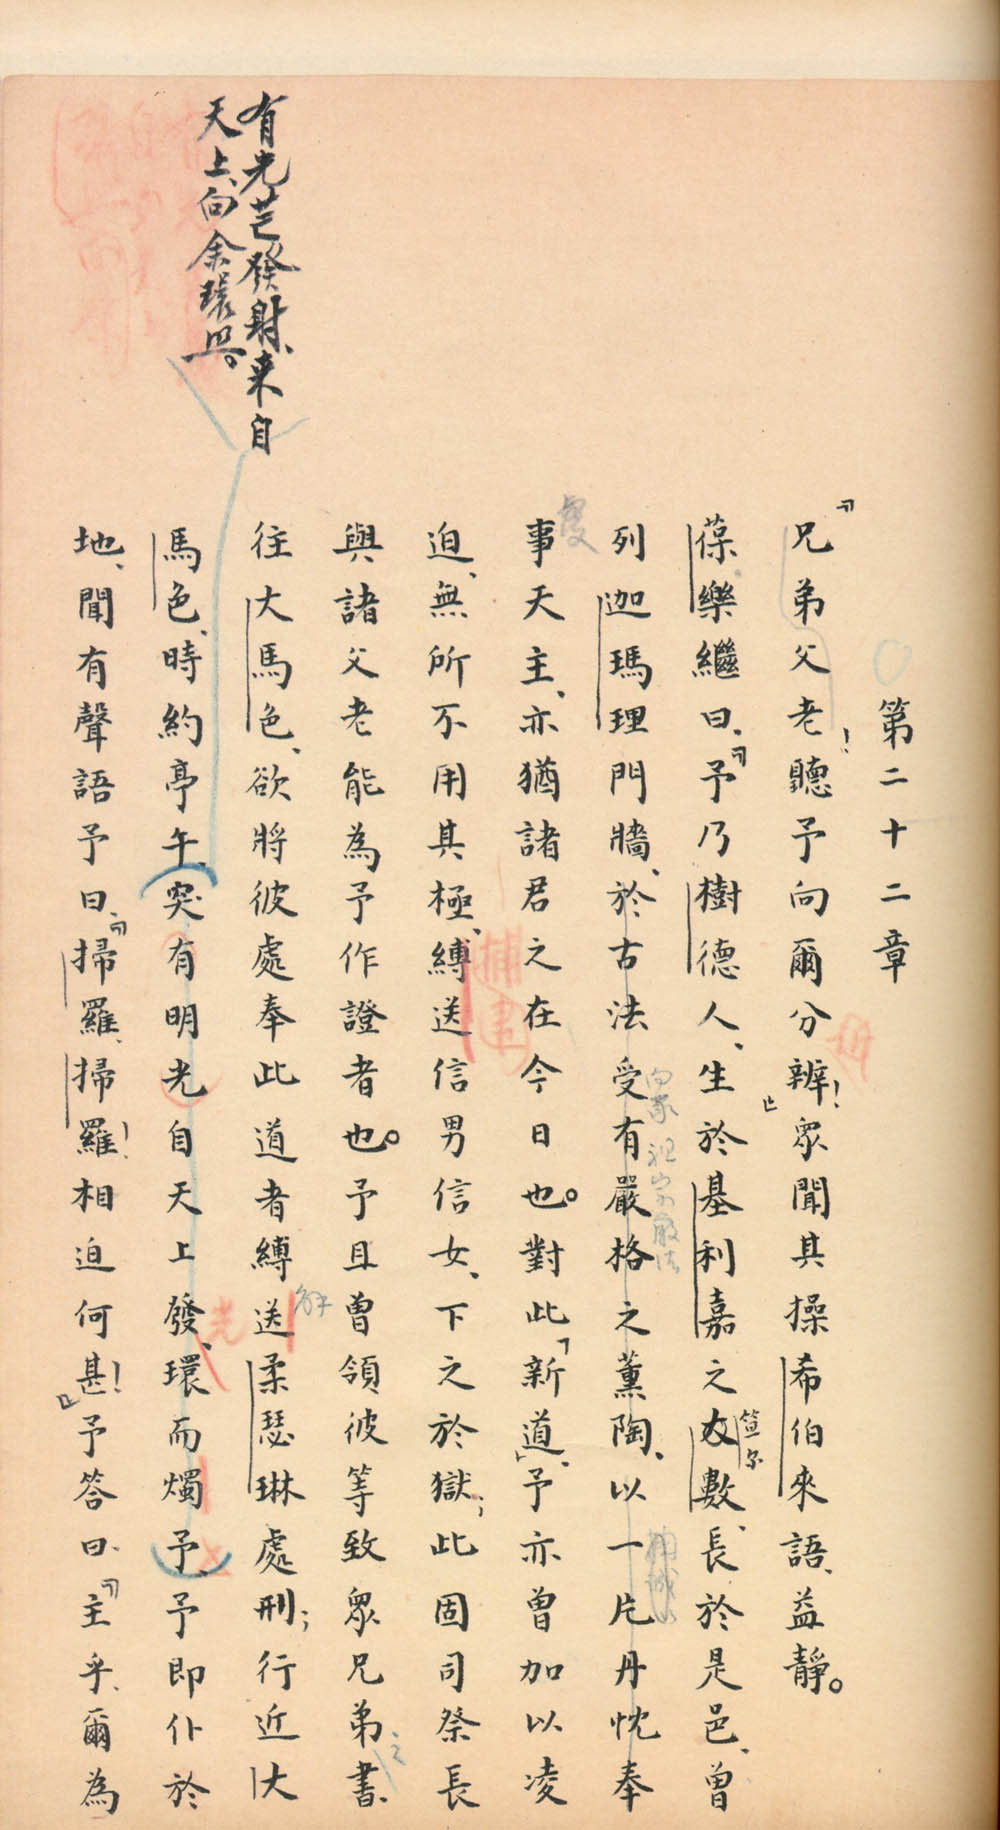 第二十二章
「兄弟父老!聽予向爾分辨!」眾聞其操希伯來語、益靜。
葆樂繼曰、「予乃樹德人、生於基利嘉之大數、長於是邑、曾
列迦瑪理門牆、於古法受有嚴格之薰陶、以一片丹忱奉
事天主、亦猶諸君之在今日也。對此「新道」、予亦曾加以凌
迫、無所不用其極、縛送信男信女、下之於獄;此固司祭長
與諸父老能為予作證者也。予且曾領彼等致眾兄弟書、
往大馬色、欲將彼處奉此道者縛送柔瑟琳處刑;行近大
馬色、時約亭午、突有明光自天上發、環而燭予、予即仆於
地、聞有聲語予曰、「掃羅、掃羅!相迫何甚!」予答曰、「主乎、爾為
有光芒發射、来自
天上、向余環照。
捕
光
解
之